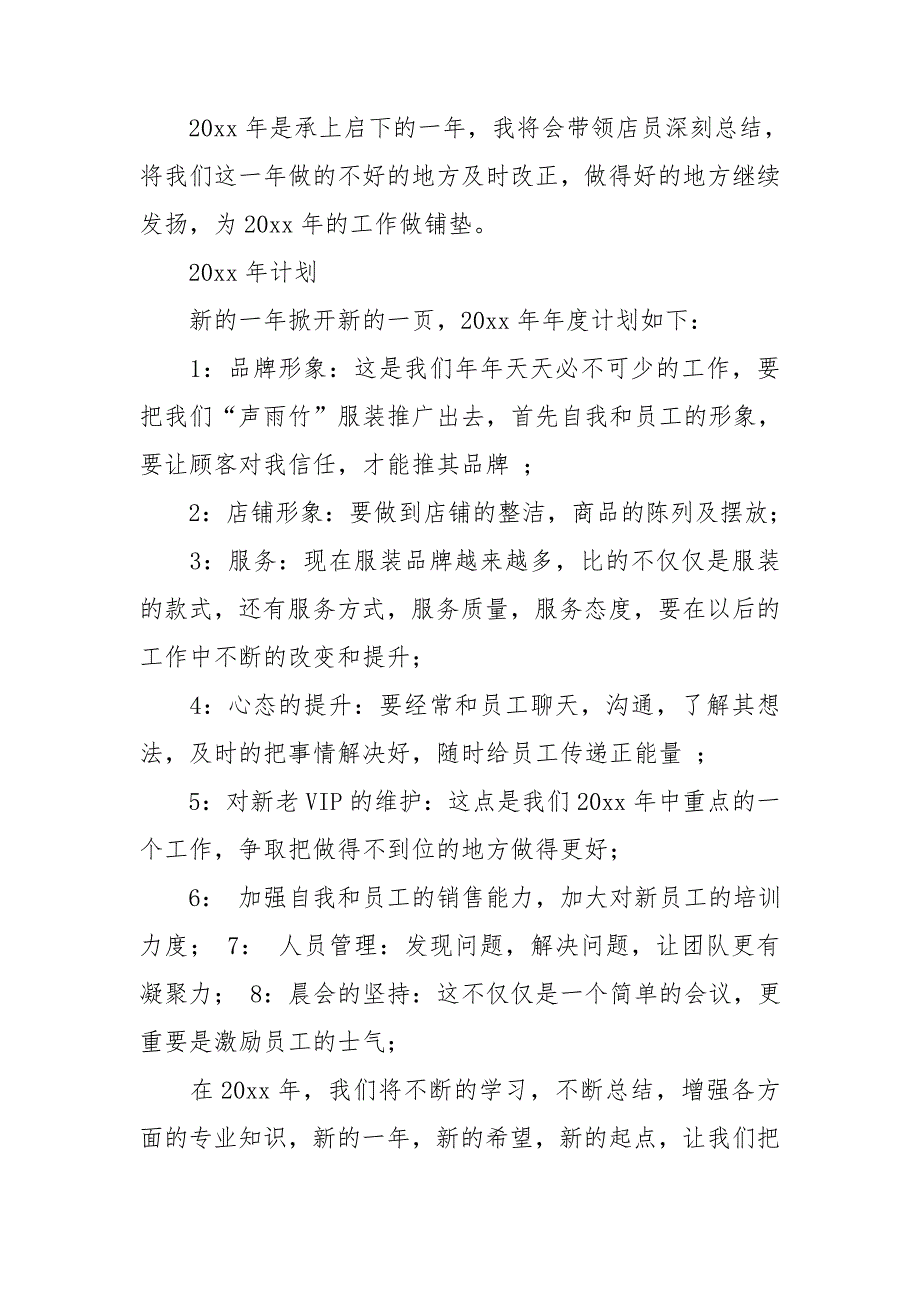 20xx 年是承上启下的一年，我将会带领店员深刻总结，
将我们这一年做的不好的地方及时改正，做得好的地方继续
发扬，为 20xx 年的工作做铺垫。
20xx 年计划
新的一年掀开新的一页，20xx 年年度计划如下：
1：品牌形象：这是我们年年天天必不可少的工作，要
把我们“声雨竹”服装推广出去，首先自我和员工的形象，
要让顾客对我信任，才能推其品牌 ；
2：店铺形象：要做到店铺的整洁，商品的陈列及摆放；
3：服务：现在服装品牌越来越多，比的不仅仅是服装
的款式，还有服务方式，服务质量，服务态度，要在以后的
工作中不断的改变和提升；
4：心态的提升：要经常和员工聊天，沟通，了解其想
法，及时的把事情解决好，随时给员工传递正能量 ；
5：对新老 VIP 的维护：这点是我们 20xx 年中重点的一
个工作，争取把做得不到位的地方做得更好；
6： 加强自我和员工的销售能力，加大对新员工的培训
力度； 7： 人员管理：发现问题，解决问题，让团队更有
凝聚力； 8：晨会的坚持：这不仅仅是一个简单的会议，更
重要是激励员工的士气；
在 20xx 年，我们将不断的学习，不断总结，增强各方
面的专业知识，新的一年，新的希望，新的起点，让我们把